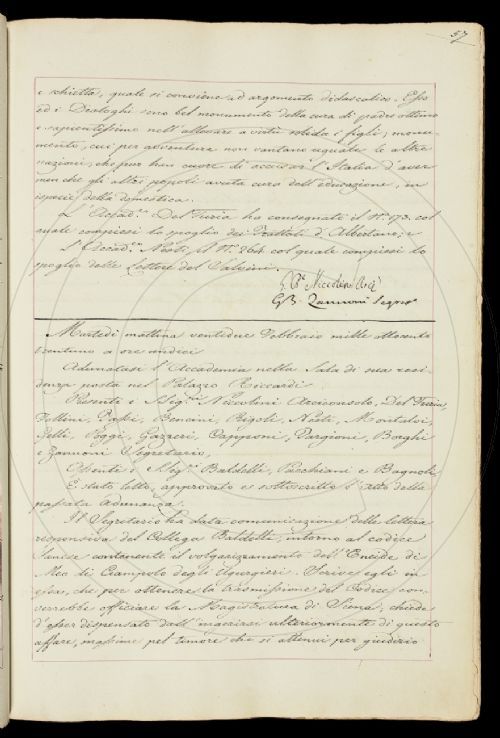 57
e schietta, quale si conviene ad argomento didascalico. Esso
ed i Dialoghi sono bel monumento della cura di padre ottimo
e sapientissimo nell'allevare a virtù solida i figli; monu-
mento, cui per avventura non vantano uguale le altre
nazioni, che pur han cuore di accusar l'Italia d'aver
men che gli altri popoli avuta cura dell'educazione, in
ispecie della domestica.
L'Accad.º Del Furia ha consegnati il N.º 173. col
quale compiesi lo spoglio dei Trattati d'Albertano; e
L'Accad.º Nesti il N.º 364. col quale compiesi lo
spoglio delle Lettere del Salvini.
G. B. Niccolini
G. B. Zannoni Segret.º
Martedì mattina ventidue Febbraio mille ottocento
trentuno a ore undici
Adunatasi l'Accademia nella Sala di sua resi-
denza posta nel Palazzo Riccardi
Presenti i Sigg.ri Niccolini Arciconsolo, Del Furia,
Follini, Bencini, Rigoli, Nesti, Montalvi,
Gelli, Poggi, Gazzeri, Capponi, Targioni, Borghi
e Zannoni Segretario,
Assenti i Sigg.ri Baldelli, Pacchiani e Bagnoli
È stato letto, approvato e sottoscritto l'Atto della
passata adunanza.
Il Segretario ha data comunicazione della lettera
responsiva del Collega Baldelli, intorno al codice
Sanese contenente il volgarizzamento dell'Eneide di
Meo di Ciampolo degli Ugurgieri. Scrive egli in
essa, che per ottenere la trasmissione del Codice con-
verrebbe officiare la Magistratura di Siena; chiede
d'esser dispensato dall'ulteriormente di questo
affare, massime pel timore che si attenui per giudizio